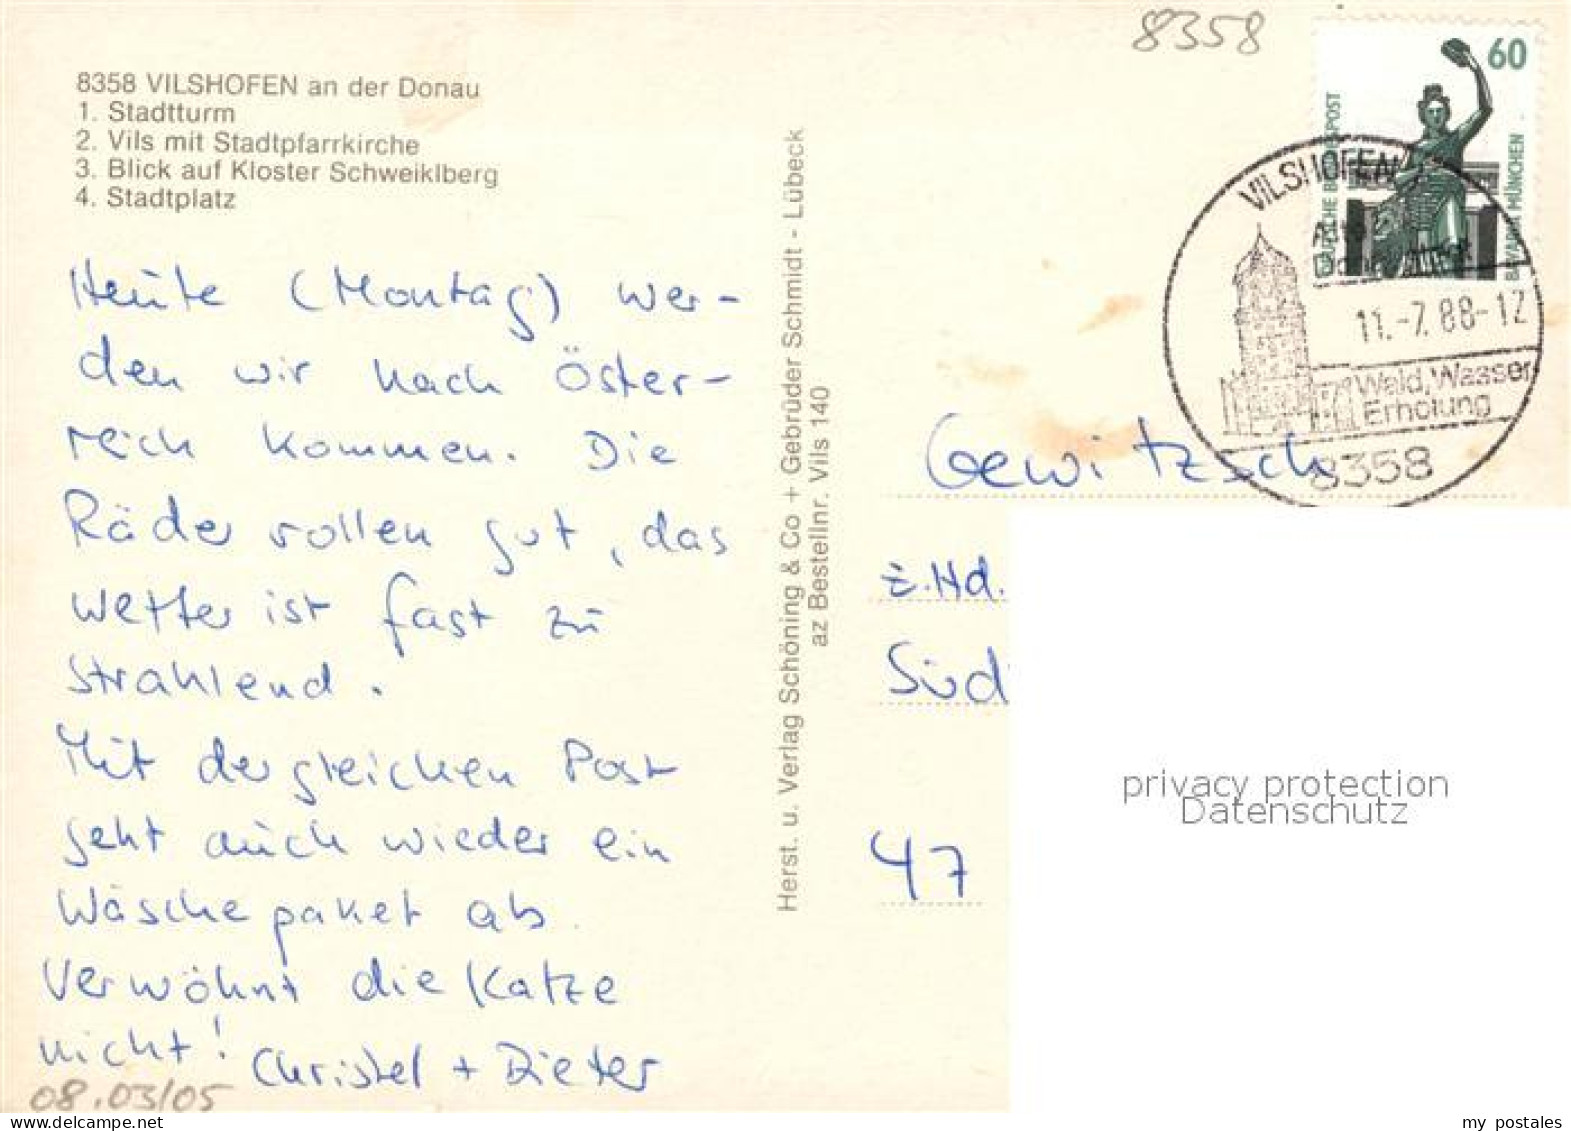 8358
8358 VILSHOFEN an der Donau
1. Stadtturm
2. Vils mit Stadtpfarrkirche
3. Blick auf Kloster Schweiklberg
4. Stadtplatz
Heute (Montag) wer-
den wir nach Öster-
reich kommen. Die
Räder rollen gut, das
Wetter ist fast zu
strahlend.
Mit der gleichen Post
geht auch wieder ein
Wäschepaket ab.
Verwöhnt die Katze
nicht!
Christel + Dieter
08.03/05
Herst. u. Verlag Schöning & Co + Gebrüder Schmidt - Lübeck
az Bestellnr. Vils 140
60
DEUTSCHE BUNDESPOST
BAVARIA MÜNCHEN
VILSHOFEN
11.-7.88-12
Wald, Wasser
Erholung
8358
Gewitzsch
z.Hd.
Süd
47
privacy protection
Datenschutz
my postales